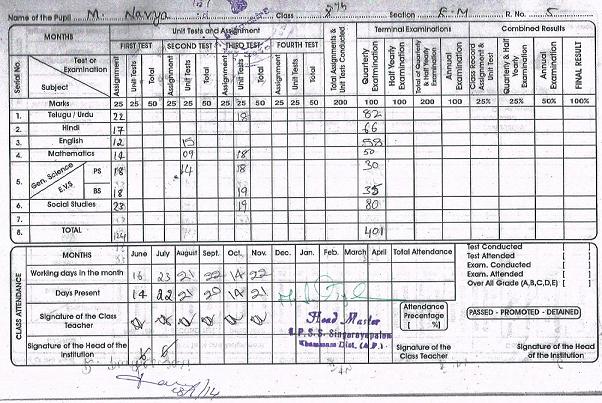 Name of the Pupil M. Navya Class 8th Section E.M R. No. 5
Serial No. MONTHS Unit Tests and Assignment Total Assignments & Unit Test Conducted Terminal Examinations Combined Results
Test or Examination FIRST TEST SECOND TEST THIRD TEST FOURTH TEST
Subject Assignment Unit Tests Total Assignment Unit Tests Total Assignment Unit Tests Total Assignment Unit Tests Total Quarterly Examination Half Yearly Examination Total of Quarterly & Half Yearly Examination Annual Examination Class Record Assignment & Unit Test Quarterly & Half Yearly Examination Annual Examination FINAL RESULT
Marks 25 25 50 25 25 50 25 25 50 25 25 50 200 100 100 200 100 25% 25% 50% 100%
1. Telugu / Urdu 22 18 82
2. Hindi 17 66
3. English 12 15 58
4. Mathematics 14 09 18 50
5. Gen. Science E.V.S PS 18 14 18 30
BS 18 19 35
6. Social Studies 23 19 80
7.
8. TOTAL 124 401
CLASS ATTENDANCE MONTHS June July August Sept. Oct. Nov. Dec. Jan. Feb. March April Total Attendance
Working days in the month 16 23 21 22 14 22
Days Present 14 22 21 20 14 21
Signature of the Class Teacher
Signature of the Head of the Institution
Head Master
Z.P.S.S. Singarayapalem
Khammam Dist. (A.P.)
Attendance Precentage [ %]
Signature of the Class Teacher
Test Conducted [ ]
Test Attended [ ]
Exam. Conducted [ ]
Exam. Attended [ ]
Over All Grade (A,B,C,D,E) [ ]
PASSED - PROMOTED - DETAINED
Signature of the Head of the Institution